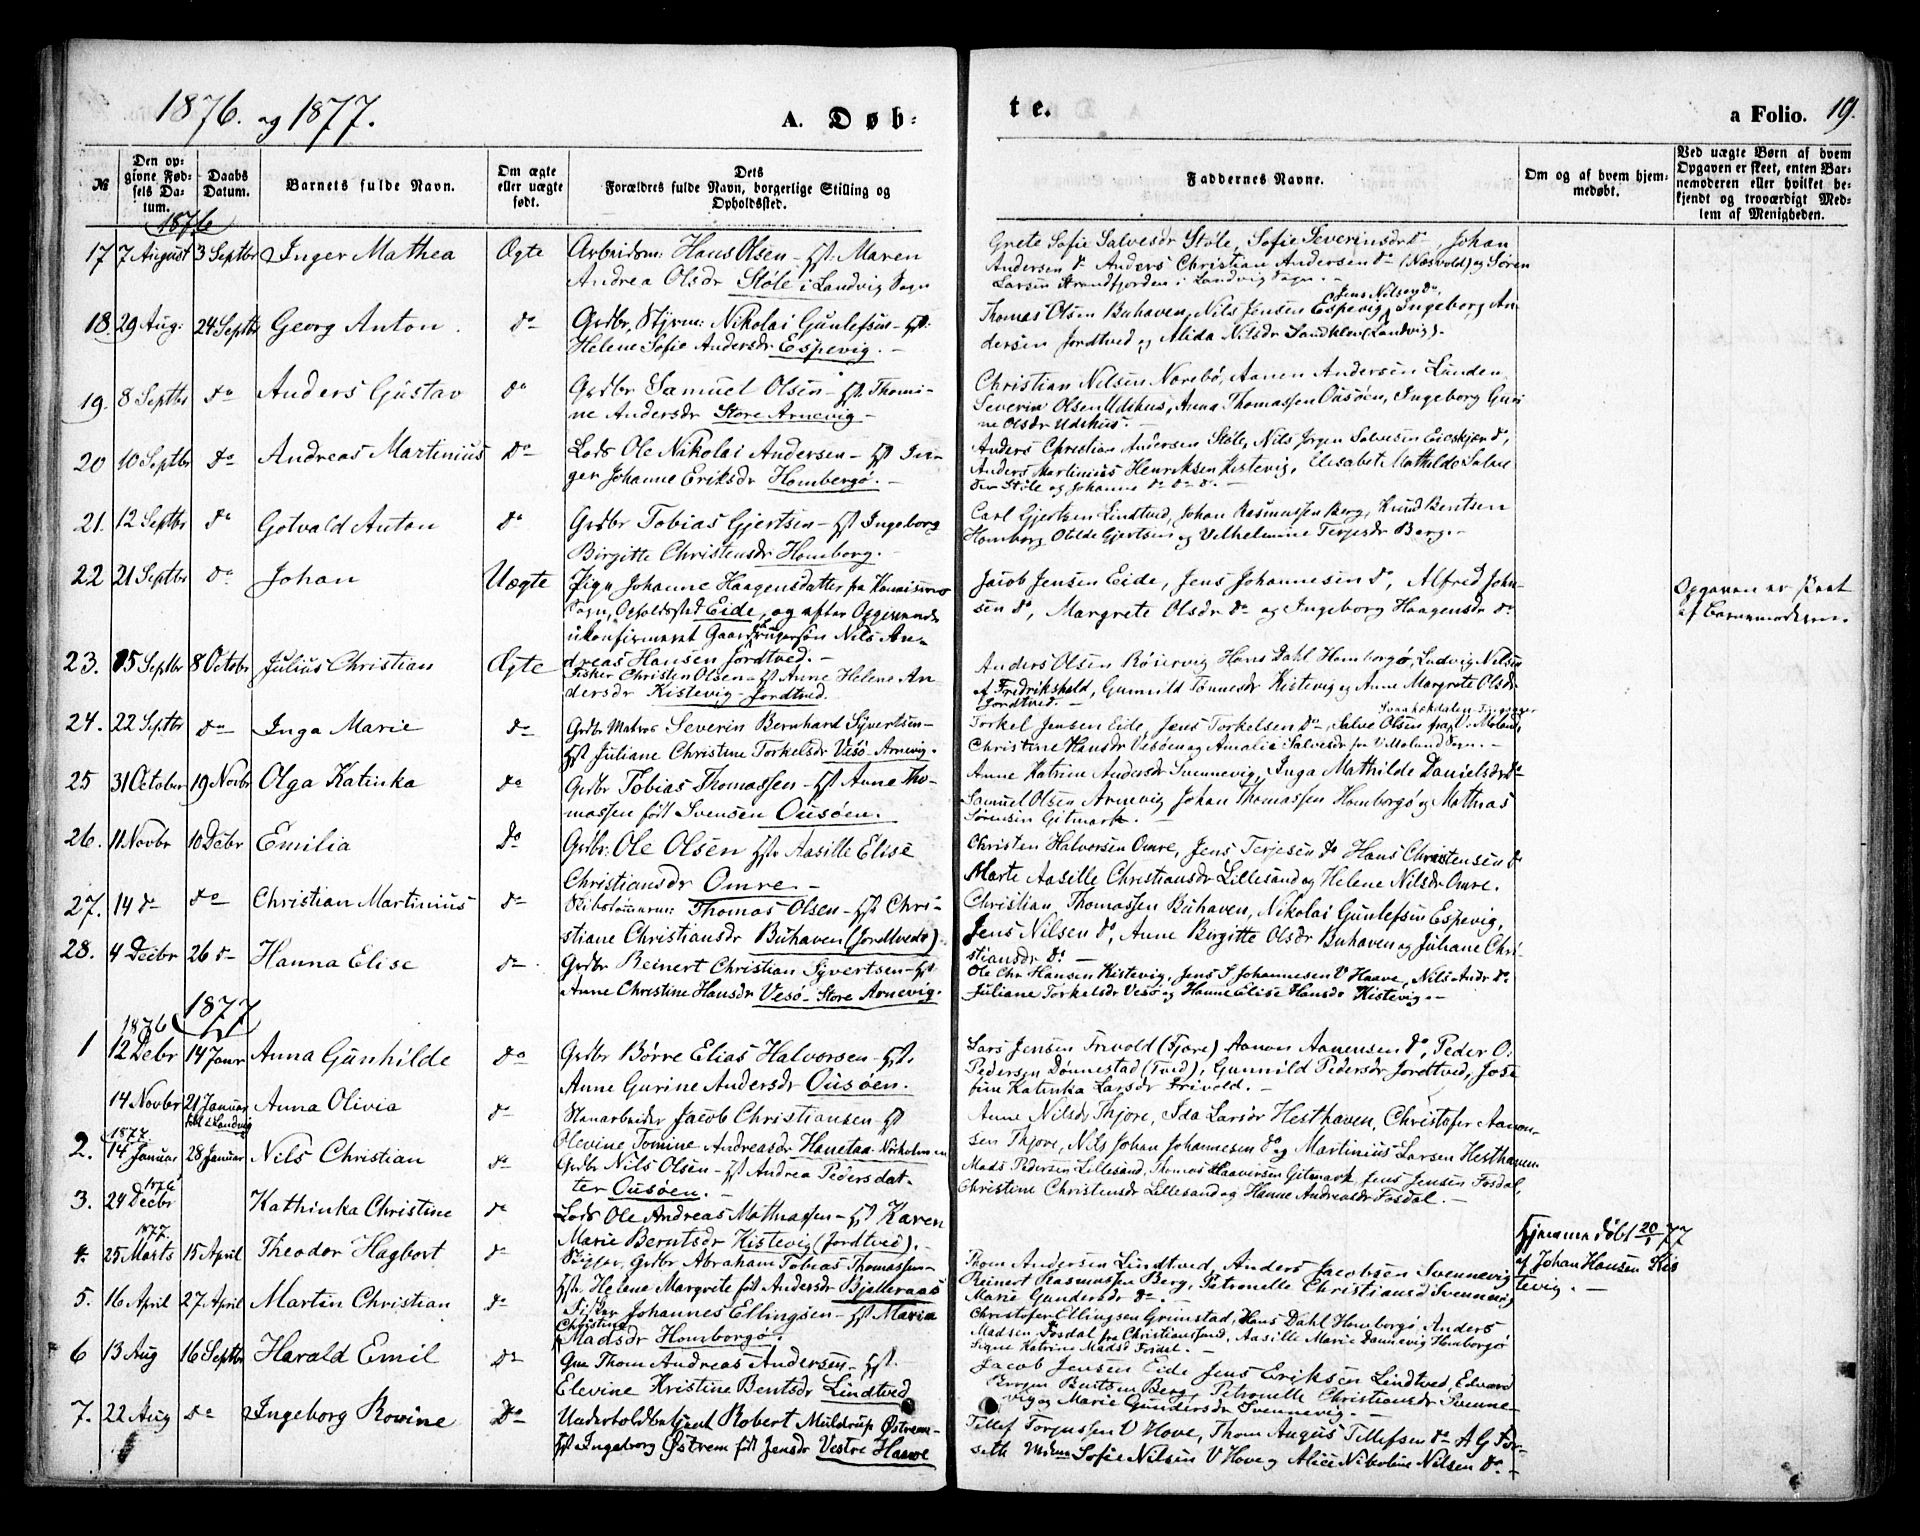 1876 og 1877.
A. Døb-
te.
a Folio. 19.
№
Den op-
givne Fød-
sels Da-
tum.
Daabs
Datum.
Barnets fulde Navn.
Om ægte
eller uægte
født.
Dets
Forældres fulde Navn, borgerlige Stilling og
Opholdssted.
Faddernes Navne.
Om og af hvem hjem-
medøbt.
Ved uægte Børn af hvem
Opgaven er skeet, enten Bar-
nemoderen eller hvilket be-
kjendt og troværdigt Med-
lem af Menigheden.
1876
17 7 August 3 Septbr Inger Mathea Ægte Arbeidsm: Hans Olsen - Hst. Maren
Andrea Olsdr Støle i Landvig Sogn
Grete Sofie Salvesdr Støle, Sofie Severinsdr do, Johan
Andersen do Anders Christian Andersen do (Næsvold) og Søren
Larsen Strandfjorden i Landvig Sogn. -
18. 29 Aug: 24 Septbr Georg Anton. do Grdbr, Styrm: Nikolai Gunlefsen - Hst:
Helene Sofie Andersdr Espevig. -
Jens Nilsen do,
Thomas Olsen Buhaven, Nils Jensen Espevig, Ingeborg An
dersen Jordtved og Alida Nilsdr Sandklev (Landvig). -
19. 8 Septbr do Anders Gustav do Grdbr Samuel Olsen - Hst. Thomi-
ne Andersdr Store Arnevig -
Christian Nilsen Narebø, Aanen Andersen Linden,
Severin Olsen Udihus, Anna Thomassen Ousøen, Ingeborg Guri
ne Olsdr Udihus. -
20 10 Septbr do Andreas Martinius do Lods Ole Nikolai Andersen - Hst In-
ger Johanne Eriksdr Hombergø. -
Anders Christian Andersen Støle, Nils Jørgen Salvesen Eieskjær do,
Anders Martinius Henriksen Kistevig, Elisabet Mathilde Salve
dtr Støle og Johanne do do do. -
21. 12 Septbr do Gotvald Anton do Grdbr Tobias Gjertsen - Hst Ingeborg
Birgitte Christensdr Homborg. -
Carl Gjertsen Lindtved, Johan Rasmussen Berg, Knud Bentsen
Homborg Otilde Gjertsen og Vilhelmine Terjesdr Berg. -
22 21 Septbr do Johan Uægte Pige Johanne Haagensdatter fra
Sogn, Opholdssted Eide, og efter Opgivende
ukonfirmeret Gaardbrugersøn Nils An-
dreas Hansen Jordtved. -
Jacob Jensen Eide, Jens Johannesen do, Alfred John-
sen do, Margrete Olsdr do og Ingeborg Haagensdr do
Opgaven er skeet
af Barnemoderen.
23. 15 Septbr 8 Octobr Julius Christian Ægte Fisker Christen Olsen - Hst Anne Helene An-
dersdr Kistevig - Jordtved.
Anders Olsen Røsevig Hans Dahl Homborgø, Ludvig Nilsen
af Fredrikshald, Gunnild Tønnesdr Kistevig og Anne Margrete Olsdr
Jordtved. -
24. 22 Septbr do Inga Marie do Grdbr Matros Severin Bernhard Syvertsen -
Hst Juliane Christine Torkelsdr Vesø - Arnevig.
Torkel Jensen Eide, Jens Torkelsen do, Salve Olsen fra V. Moland,
Christine Hansdr Vesøen og Amalia Salvesdr fra V Moland Sogn. -
25 31 October 19 Novbr Olga Katinka do Grdbr Tobias Thomassen - Hst Anne Tho-
massen født Svensen Ousøen. -
Anne Katrine Andersdr Svennevig, Inga Mathilde Danielsdr do
Samuel Olsen Arnevig Johan Thomassen Homborgø og Mathias
Sørensen Gitmark. -
26. 11 Novbr 10 Debr Emilia Do Grdbr: Ole Olsen Hst. Aasille Elise
Christiansdr Omre -
Christen Halvorsen Omre, Jens Terjesen do Hans Christensen do
Marte Aasille Christiansdr Lillesand og Helene Nilsdr Omre.
27. 14 do do Christian Martinius do Skibstømmerm: Thomas Olsen - Hst Chri-
stiane Christiansdr Buhaven (Jordtved).
Christian, Thomassen Buhaven, Nikolai Gunlefsen Espevig,
Jens Nilsen do, Anne Birgitte Olsdr Buhaven og Juliane Chri-
stiansdr do. -
28. 4 Decbr 26 do Hanna Elise do Grdbr Reinert Christian Syvertsen - Hst
Anne Christine Hansdr Vesø - Store Arnevig.
Ole Chr Hansen Kistevig, Jens S Johannesen V Haave, Nils Andr do
Juliane Torkelsdr Vesø og Hanne Elise Hansdr Kistevig. -
1877
1876
1 12 Debr 14 Janr Anna Gunhilde do Grdbr Børre Elias Halvorsen - Hst.
Anne Gurine Andersdr Ousøen.
Lars Jensen Frivold (Fjære) Aanon Aanensen do, Peder O.
Pedersen Dønnestad (Tved), Gunnild Pedersdr Jordtved, Jose
fine Katinka Larsdr Frivold. -
14 Novbr 21 Januar Anna Olivia do Stenarbeider Jacob Christiansen Hst
Olevine Tomine Andreasdr Hanetaa - Norholmen
Anne Nilsdr Thjore, Ida Larsdr Hesthaven, Christofer Aanon-
sen Thjore, Nils Johan Johannesen do og Martinius Larsen Hesthaven
1877
2. 14 Januar 28 Januar Nils Christian do Grdbr Nils Olsen - Hst Andrea Pedersdat-
ter Ousøen. -
Mads Pedersen Lillesand, Thomas Haaversen Gitmark, Jens Jensen Fosdal,
Christine Christensdr Lillesand og Hanne Andreasdr Fosdal. -
1876
3. 24 Decbr Kathinka Christine do Lods Ole Andreas Mathiassen - Hst Karen
Marie Berntsdr Kistevig (Jordtved). -
Hjemmedøbt 20/1 77
af Johan Hansen Kis
tevig. -
1877.
4. 25 Marts 15 April Theodor Hagbart do Skipper, Grdbr Abraham Tobias Thomassen -
Hst. Helene Margrete født Andersdr Bjelleraas
Thom Andersen Lindtved, Anders Jacobsen Svennevig
Reinert Rasmussen Berg, Petronelle Christiansd Svennevig
Marie Gundersdr do -
5. 16 April 27 April Martin Christian do Fisker Johannes Ellingsen - Hst Maria
Christine
Madsdr Homborgø. -
Christofer Ellingsen Grimstad, Hans Dahl Homborgø Anders
Madsen Fosdal fra Christianssund, Aasille Marie Dannevig Homborgø
Signe Katrine Madsd Fosdal. -
6 13 Aug 16 Septbr Harald Emil Do Gm Thom Andreas Andersen - Hst.
Elevine Kristine Bentsdr Lindtved
Jacob Jensen Eide Jens Eriksen Lindtved, Edvard
Bentsen Berg, Petronelle Christiansdr Svenne-
vig og Marie Gundersdr Svennevig. -
7. 22 Aug do Ingeborg Rovine Do Underfoldbetjent Robert Müldrup Østrem -
Hst Ingeborg Østrem født Jensdr Vestre Haave
Tillef Torjussen V Hove, Thom August Tillefsen do A G Tor-
seth Sofie Nilsen V Hove og Alice Nikoline Nilsen do. -